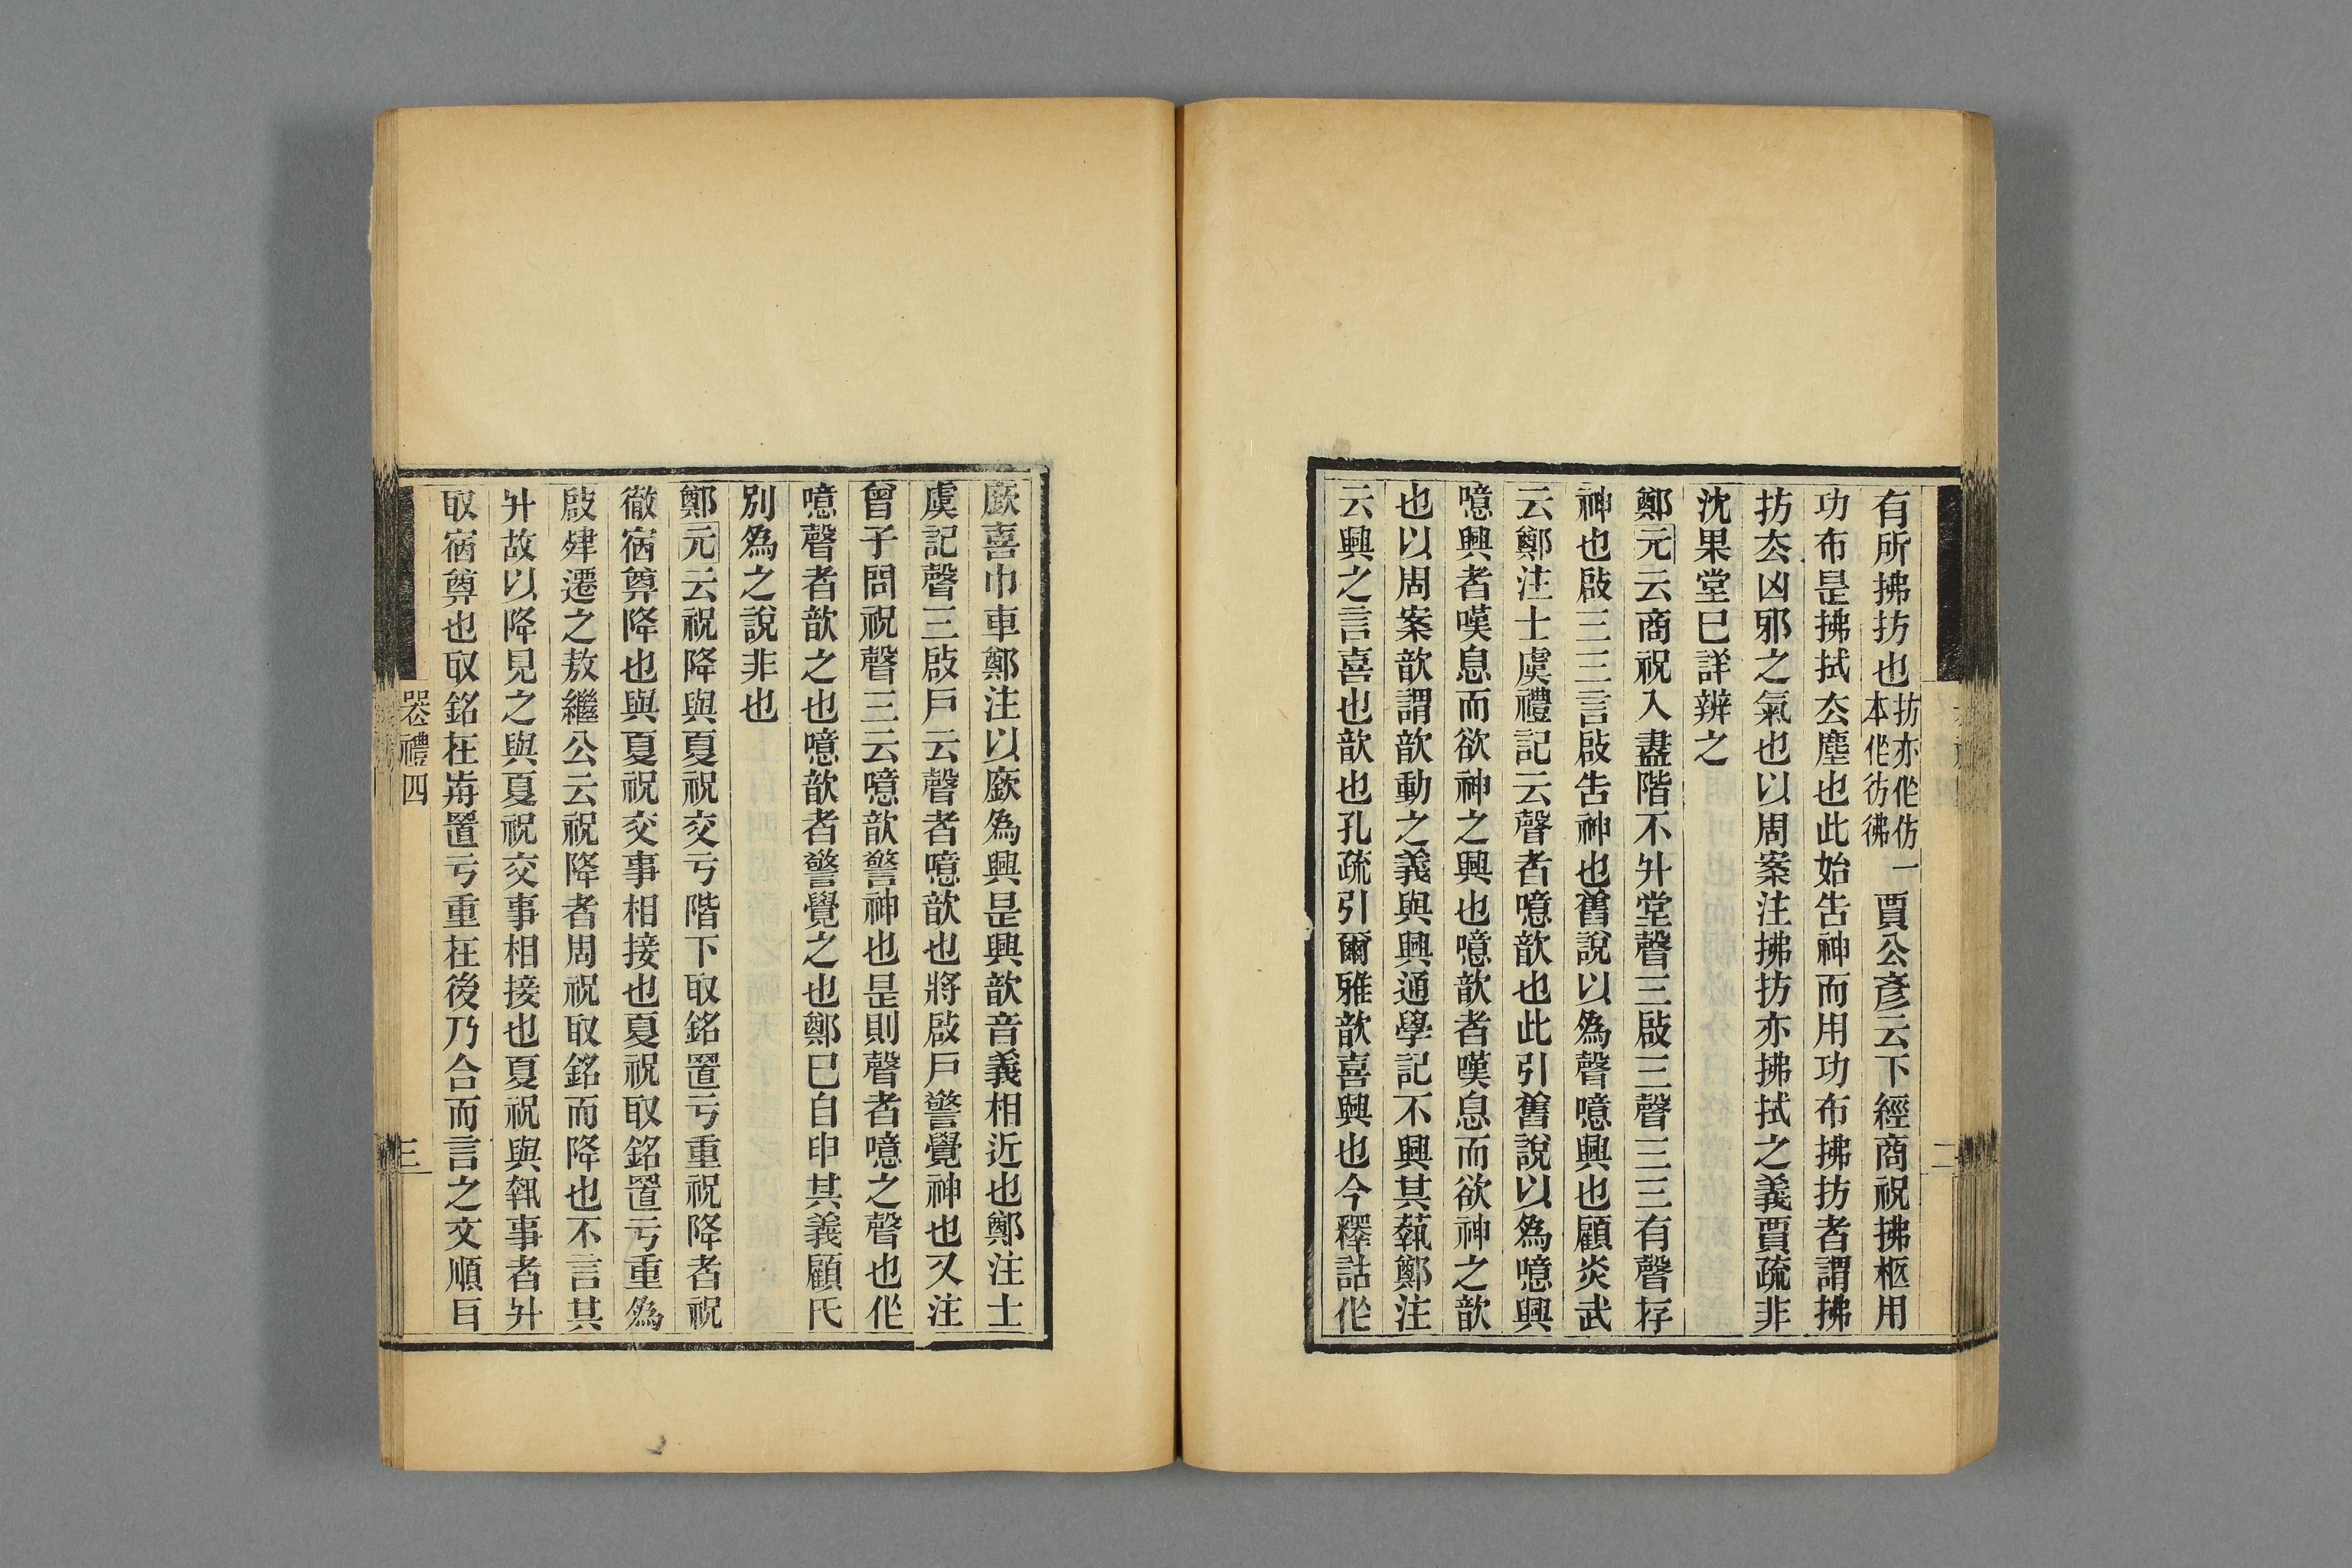 有所拂扐也扐亦作仿本作彷彿一賈公彥云下經商祝拂柩用
功布是拂拭厺塵也此始告神而用功布拂扐者謂拂
扐厺凶邪之氣也以周案注拂扐亦拂拭之義賈疏非
沈果堂巳詳辨之
鄭元云商祝入盡階不升堂聲三啟三聲三三有聲存
神也啟三三言啟告神也舊說以為聲噫興也顧炎武
云鄭注士虞禮記云聲者噫歆也此引舊說以為噫興
噫興者嘆息而欲神之興也噫歆者嘆息而欲神之歆
也以周案歆謂歆動之義與興通學記不興其蓺鄭注
云興之言喜也歆也孔疏引爾雅歆喜興也今釋詁作
廞喜巾車鄭注以廞為興是興歆音義相近也鄭注士
虞記聲三啟戶云聲者噫歆也將啟戶警覺神也又注
曾子問祝聲三云噫歆警神也是則聲者噫之聲也作
噫聲者歆之也噫歆者警覺之也鄭巳自申其義顧氏
別為之說非也
鄭元云祝降與夏祝交亏階下取銘置亏重祝降者祝
徹宿尊降也與夏祝交事相接也夏祝取銘置亏重為
啟肂遷之敖繼公云祝降者周祝取銘而降也不言其
升故以降見之與夏祝交事相接也夏祝與執事者升
取宿尊也取銘在歬置亏重在後乃合而言之文順耳
喪禮四
三
二